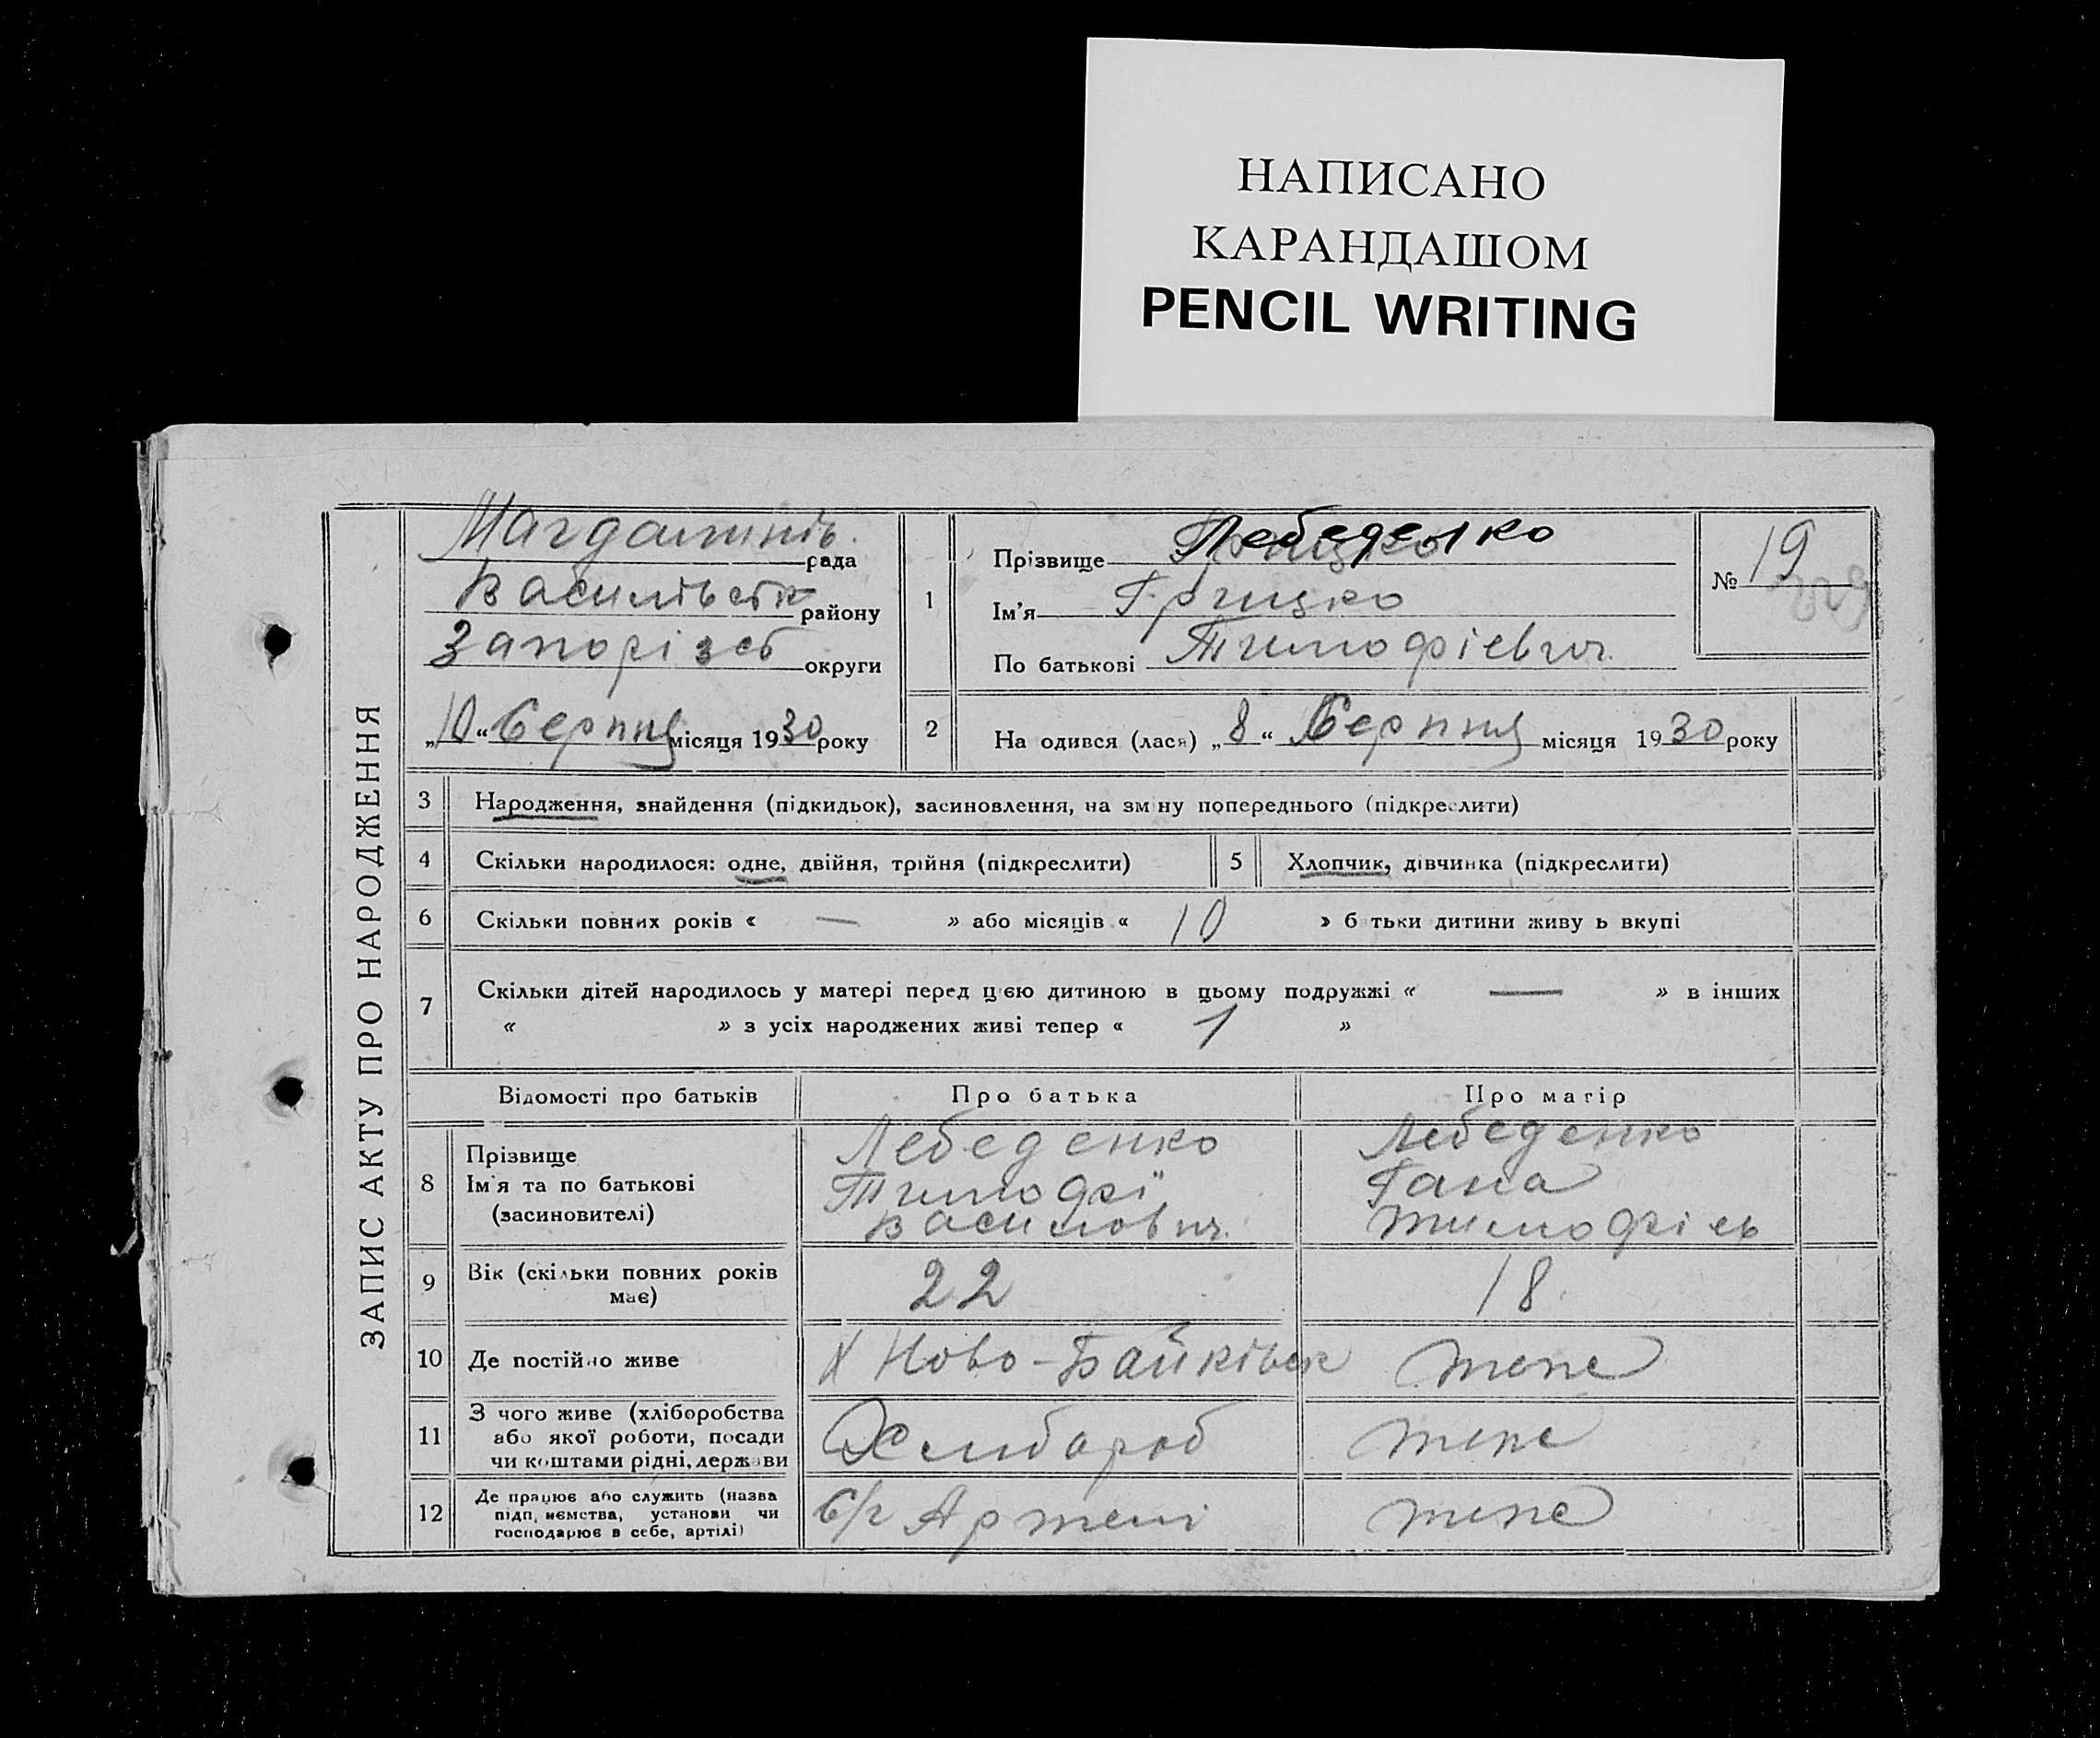 НАПИСАНО
КАРАНДАШОМ
PENCIL WRITING
ЗАПИС АКТУ ПРО НАРОДЖЕННЯ
рада
Василівськ району
Запорізь округи
„10“ Серпня місяця 1930 року
1
Прізвище Лебеденко
Ім'я Грицко
По батькові Тимофієвич.
№ 19
2 На одився (лася) „8“ Серпня місяця 1930 року
3 Народження, знайдення (підкидьок), засиновлення, на зм ну попереднього (підкреслити)
4 Скільки народилося: одне, двійня, трійня (підкреслити) 5 Хлопчик, дівчинка (підкреслити)
6 Скільки повних років « — » або місяців « 10 » б тьки дитини живу ь вкупі
7 Скільки дітей народилось у матері перед цією дитиною в цьому подружжі « — » в інших
« » з усіх народжених живі тепер « 1 »
Відомості про батьків Про батька Про матір
8 Прізвище
Ім'я та по батькові
(засиновителі)
Лебеденко
Тимофі
Василович.
Лебеденко
Гана
Тимофієв
9 Вік (скільки повних років
має)
22 18
10 Де постійно живе Х Ново-Байківськ тепе
11 З чого живе (хліборобства
або якої роботи, посади
чи коштами рідні, держави
Хлибароб тепе
12 Де працює або служить (назва
підп, иємства, установи чи
господарює в себе, артілі)
С/г Артелі тепе